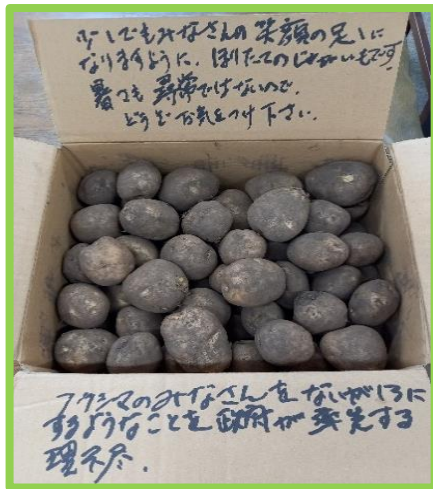 少しでもみなさんの笑顔の足しに
なりますように、ほりたてのじゃがいもです。
暑さも尋常ではないので、
どうぞお気をつけ下さい。
フクシマのみなさんをないがしろに
するようなことを政府が率先する
理不尽.